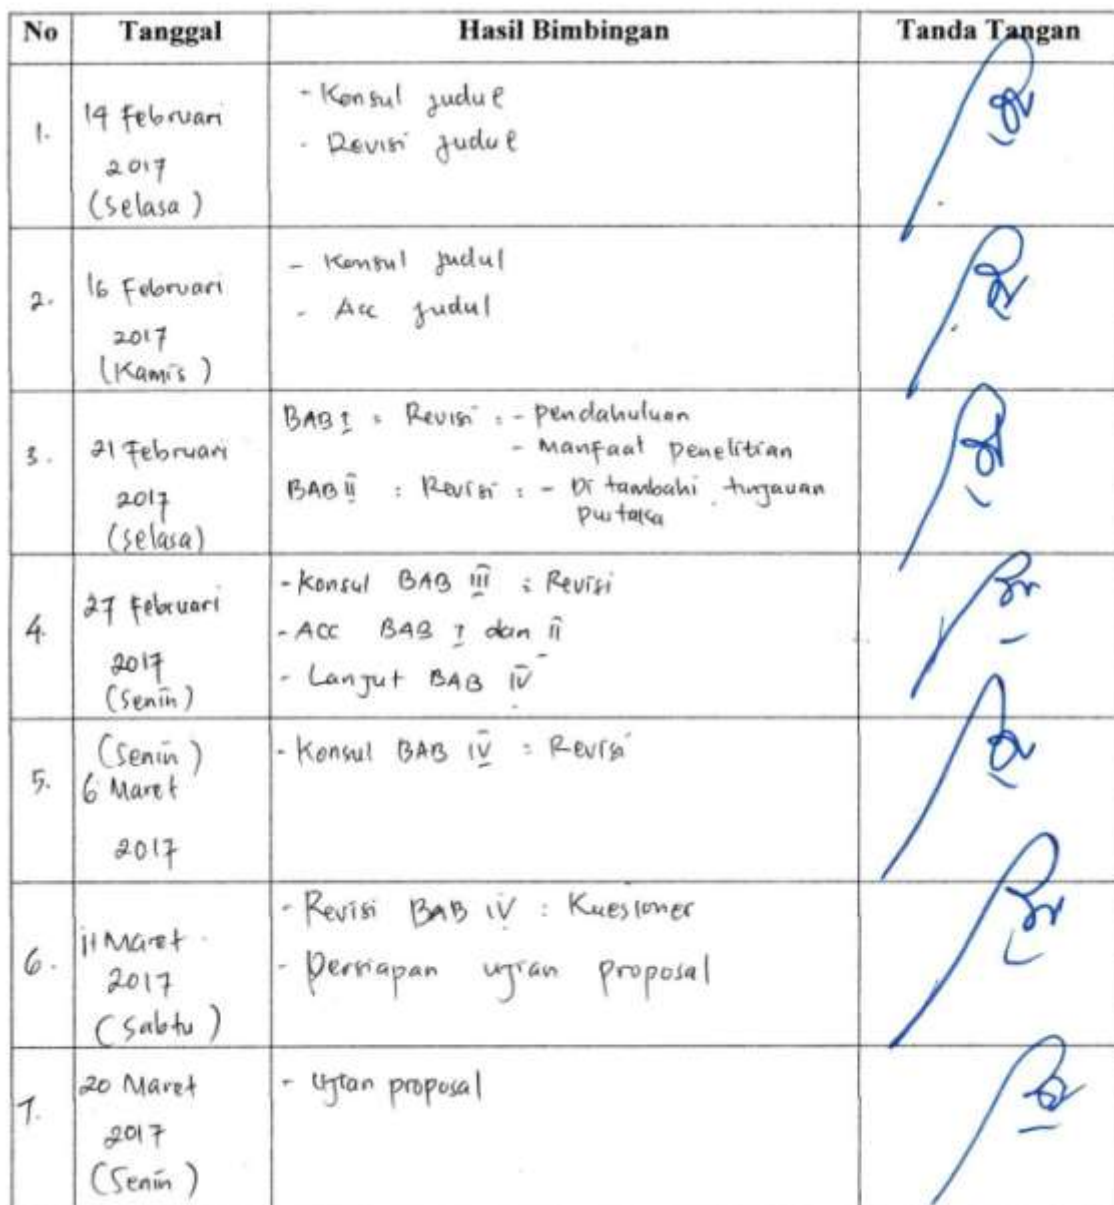 No Tanggal Hasil Bimbingan Tanda Tangan
1. 14 Februari 2017 (Selasa)
- Konsul judul
- Revisi judul
2. 16 Februari 2017 (Kamis)
- Konsul judul
- Acc judul
3. 21 Februari 2017 (Selasa)
BAB I : Revisi : - pendahuluan
- Manfaat penelitian
BAB II : Revisi : - Di tambahi tinjauan
pustaka
4. 27 Februari 2017 (Senin)
- Konsul BAB III : Revisi
- Acc BAB I dan II
- Lanjut BAB IV
5. (Senin) 6 Maret 2017
- Konsul BAB IV : Revisi
6. 11 Maret 2017 (Sabtu)
- Revisi BAB IV : Kuesioner
- Persiapan ujian proposal
7. 20 Maret 2017 (Senin)
- Ujian proposal